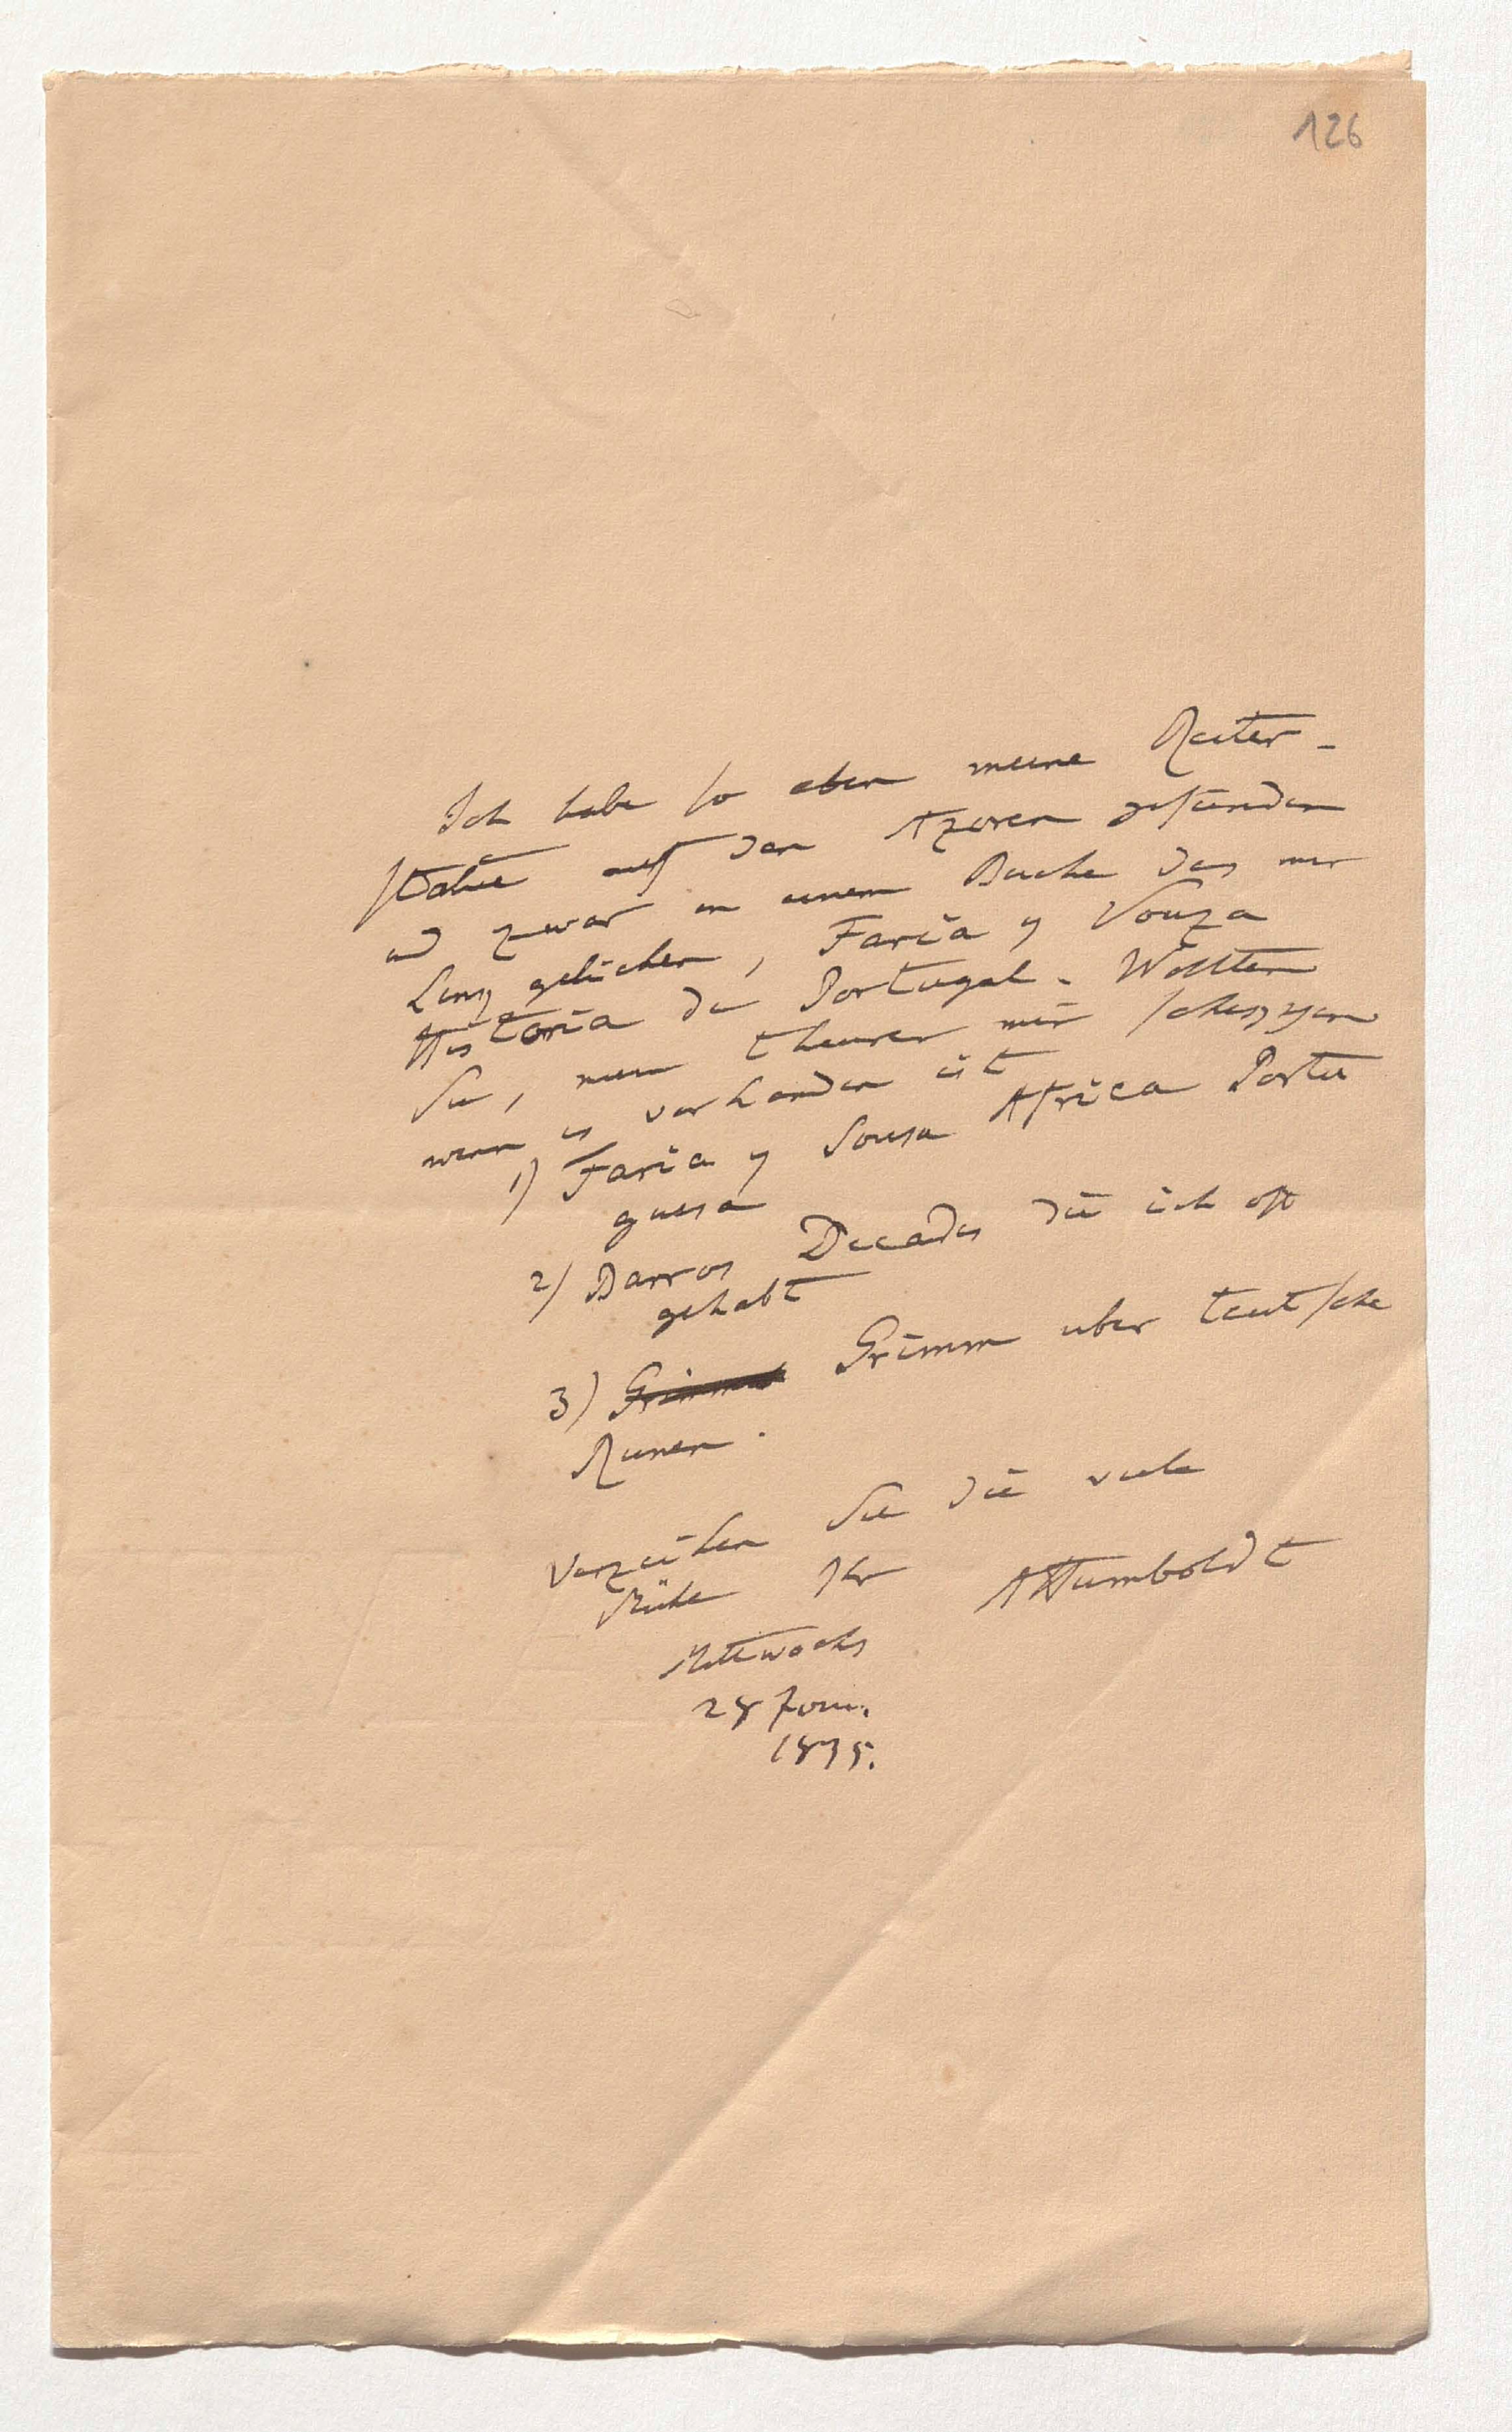 126
Ich habe so eben meine Reiter-
statue auf den Azoren gefunden
und zwar in einem Buche das mir
Lenz geliehen, Faria y Souza
Historia de Portugal. Wollten
Sie, mein theurer mir schaffen
wenn es vorhanden ist
1) Faria y Sousa Africa Portu
guesa
2) Barros Decades die ich oft
gehabt
3) Grimm Grimm uber teutsche
Runen.
Verzeihen Sie die viele
Mühe Ihr AHumboldt
Mittwochs
28 Jan.
1835.